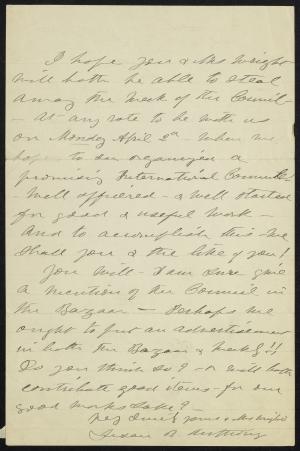 I hope you & Mrs Wright
will both be able to steal
away the week of the Council
- At any rate to be with us
on Monday April 2d when we
hope to see organized a
promising International Council -
well officered - & well started
for good & useful work -
And to accomplish this - We
shall you & the like of you!
You will - I am sure give
a mention of the Council in
the Bazaar - Perhaps we
ought to put an advertisement
in both the Bazaar & Week{}!!
Do you think so? - or will both
contribute good items - for our
good works sake? -
Very Sincerely yours & Mrs Wright's
Susan B. Anthony